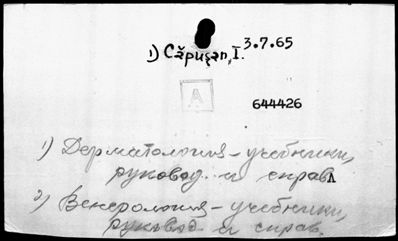 3.7.65
1) Căpuşan, I.
A
644426
1) Дерматология – учебники,
руковод. и справ.
2) Венерология – учебники,
руковод. и справ.